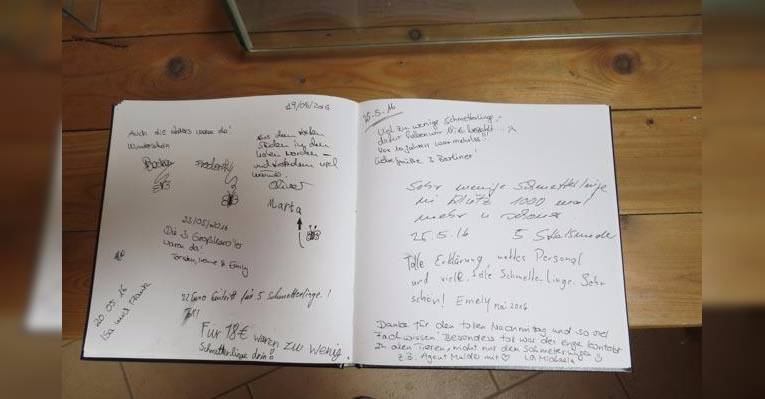 19/05/2016
Auch die waren da!
Wunderschön
Aus dem hohen
Norden in den
hohen Norden –
und trotzdem viel
wärmer.
Oliver
Marta
23/05/2016
Die 3 Großkaro's
waren da!
Torsten, & Emily
20.05.16
Isa und Frank
22 Euro Eintritt für 5 Schmetterlinge!
Für 18€ waren zu wenig
Schmetterlinge drin!
25.5.16
Viel zu wenige Schmetterlinge,
dafür haben wir 18,-€ bezahlt...
Vor 10 Jahren war mehr los!
Liebe Grüße 3 Berliner!
Sehr wenige Schmetterlinge
in 1000 mal
mehr u schöner
25.5.16 5
Tolle Erklärung nettes Personal
und viele tolle Schmetterlinge. Sehr
schön! Emely Mai 2016
Danke für den tollen Nachmittag und so viel
Fachwissen! Besonders toll war der enge Kontakt
zu allen Tieren, nicht nur den Schmetterlingen
z.B. Agent Mulder mit ♡ LG Michaela